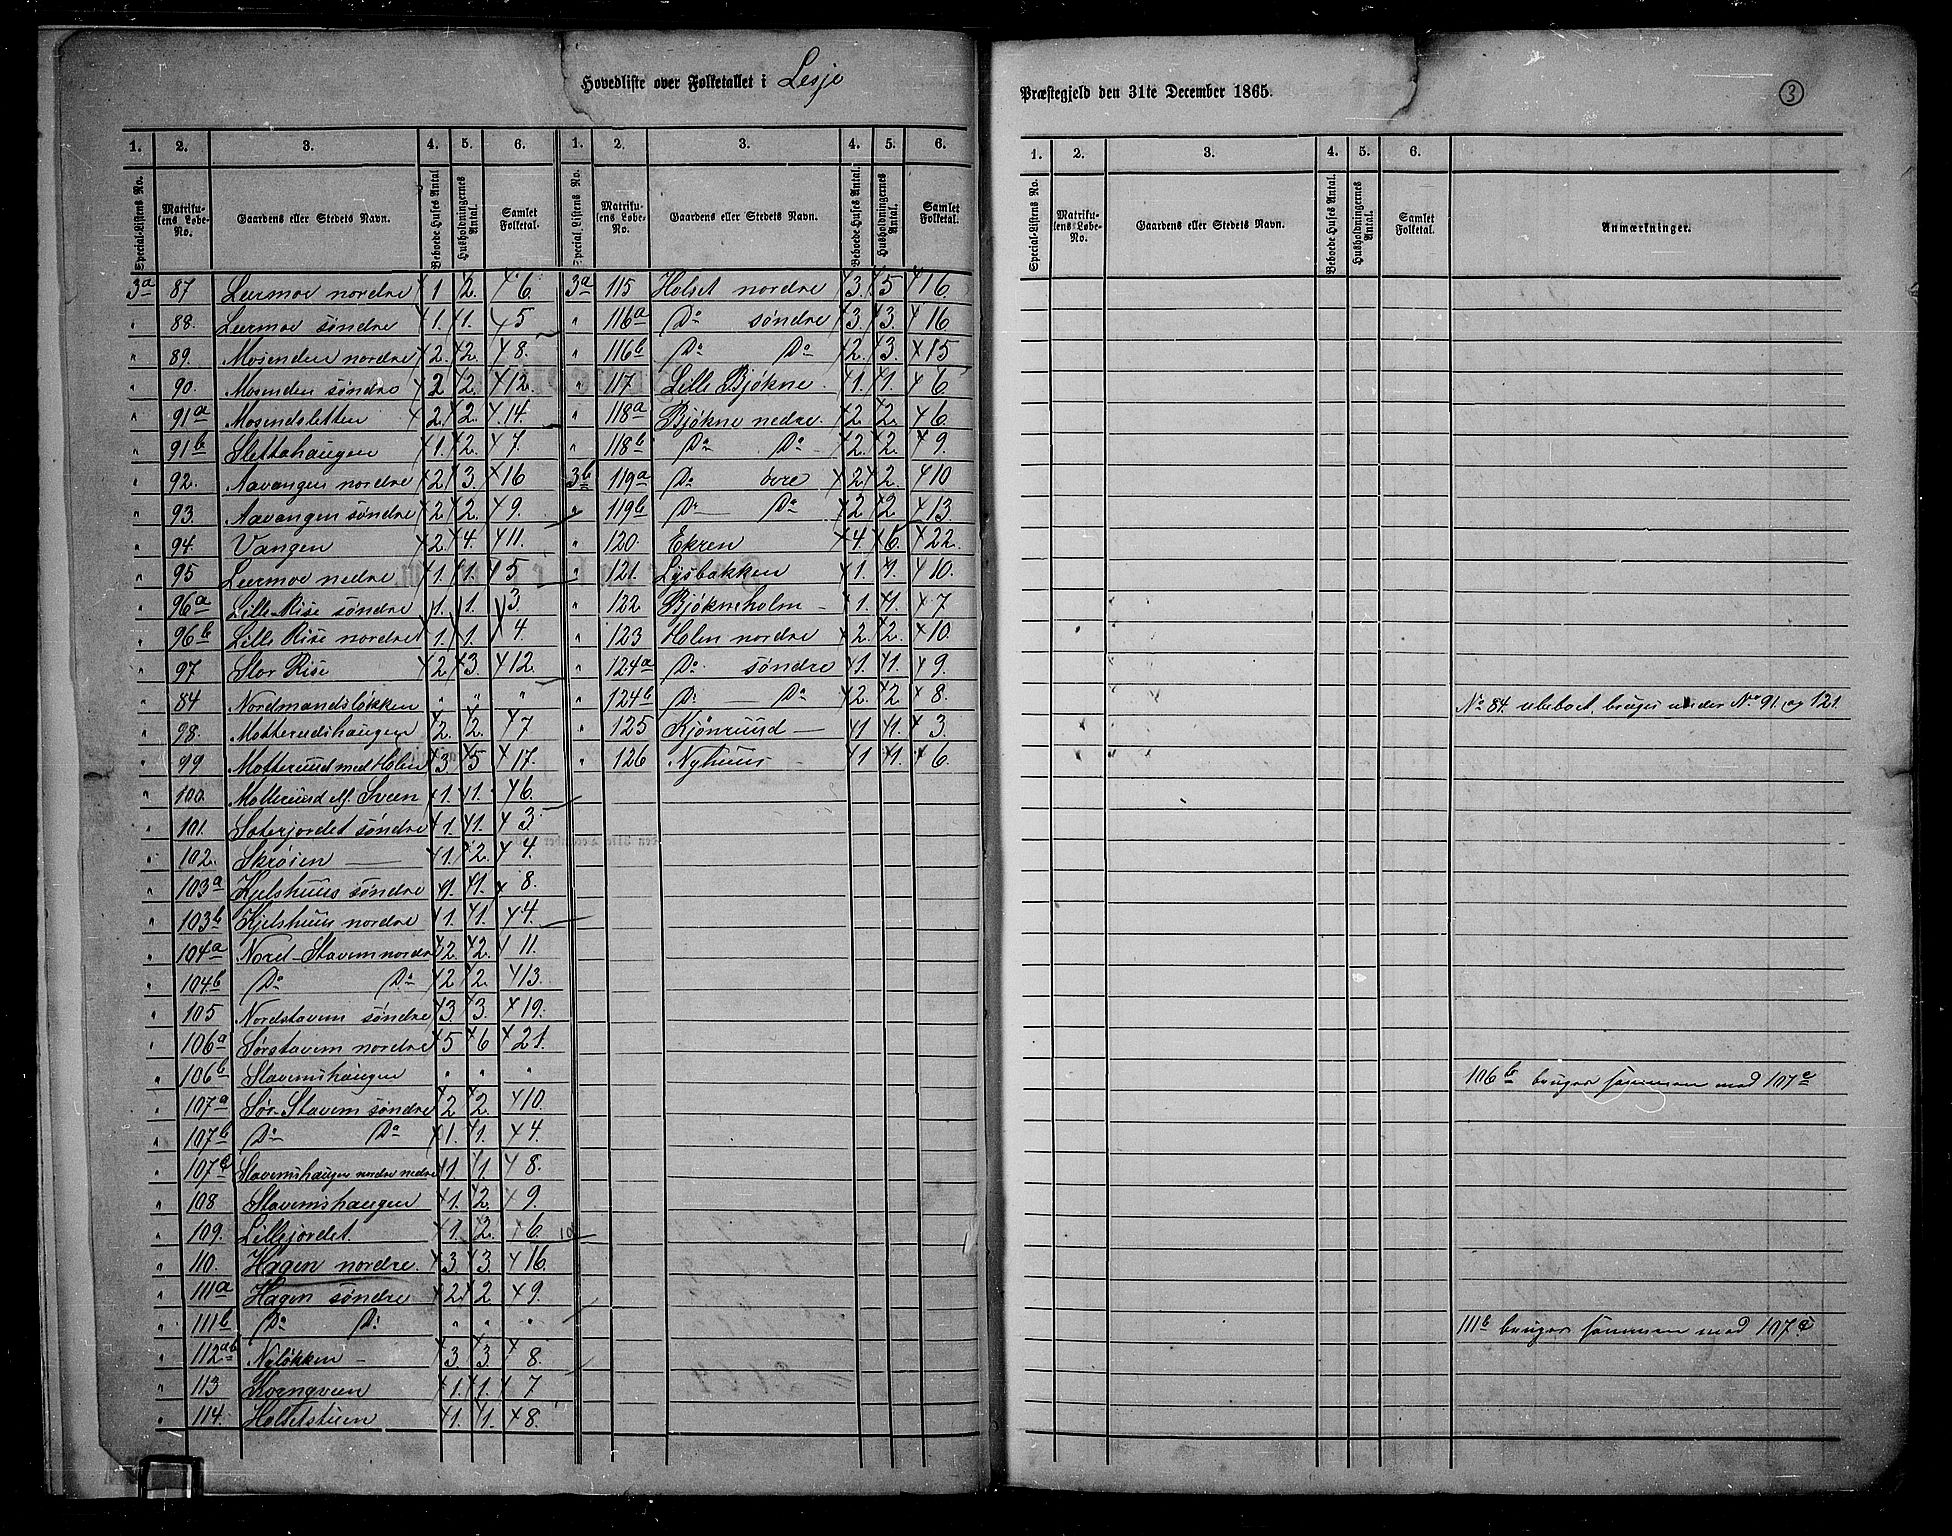 Hovedliste over Folketallet i Lesje
Præstegjeld den 31te December 1865.
3
1. 2. 3. 4. 5. 6. 1. 2. 3. 4. 5. 6.
Special-Listens No. Matrikulens Løbe-No. Gaardens eller Stedets Navn. Beboede Huses Antal. Husholdningernes Antal. Samlet Folketal. Special Listens No. Matrikulens Løbe-No. Gaardens eller Stedets Navn. Beboede Huses Antal. Husholdningernes Antal. Samlet Folketal.
3a 87 Leermoe nordre 1 2. 6.
" 88. Leermoe søndre 1. 1. 5
" 89. Mosenden nordre 2. 2. 8.
" 90. Mosenden søndre 2 2. 12.
" 91a Mosendsletten 2. 2. 14.
" 91b Slettahaugen 1. 2. 7.
" 92. Aavangen nordre 2 3. 16
" 93. Aavangen søndre 2. 2. 9.
" 94. Vangen 2. 4. 11.
" 95 Leermoe nedre 1. 1. 5
" 96a Lille Rise søndre 1. 1. 3.
" 96b Lille Rise nordre 1. 1. 4.
" 97 Stor Rise 2 3. 12.
" 84 Nordmandsløkken " " "
" 98. Motterudshaugen 2. 2. 7
" 99 Motteruud med Holen 3. 5 17.
" 100. Motteruud Sveen 1. 1. 6.
" 101. Sæterjordet søndre 1. 1. 3.
" 102. Skrøien 1. 2. 4.
" 103a Kjelshuus søndre 1. 1. 8.
" 103b Kjelshuus nordre 1. 1. 4.
" 104a Nord-Stavem nordre 2. 2. 11.
" 104b Do Do 2 2. 13.
" 105 Nordstavem søndre 3. 3. 19.
" 106a Sørstavem nordre 5 6 21.
" 106b Stavemshaugen " " "
" 107a Sør-Stavem søndre 2 2. 10.
" 107b Do Do 1. 1. 4.
" 107c Stavemshaugen nordre nedre 1. 1. 8.
" 108 Stavemshaugen 1. 2. 9.
" 109. Lillejordet 1. 2. 6.
" 110. Hagen nordre. 3. 3. 16.
" 111a Hagen søndre 2. 2 9.
" 111b Do Do " " "
" 112ab Nyløkken 3. 3. 8.
" 113 Korngveen 1. 1. 7
" 114. Holsetstuen 1. 1. 8.
3a 115 Holset nordre 3. 5 16.
" 116a Do søndre 3. 3. 16
" 116b Do Do 2. 3. 15
" 117 Lille Bjøkne. 1. 1. 6
" 118a Bjøkne nedre. 2 2. 6.
" 118b Do Do 2. 2. 9.
3b 119a Do øvre 2 2. 10
" 119b Do Do 2 2 13.
" 120 Ekren 4. 6. 22.
" 121. Lysbakken 1. 1. 10.
" 122 Bjøkneholm 1. 1. 7
" 123 Holen nordre 2. 2. 10.
" 124a Do søndre 1. 1. 9.
" 124b Do Do 2. 2 8.
" 125 Kjønruud 1 1. 3.
" 126 Nyhuus 1 1. 6.
1. 2. 3. 4. 5. 6.
Special-Listens No. Matrikulens Løbe-No. Gaardens eller Stedets Navn. Beboede Huses Antal. Husholdningernes Antal. Samlet Folketal. Anmærkninger.
No 84. ubeboet, bruges under No 91. og 121.
106b bruges sammen med 107a
111b bruges sammen med 107c